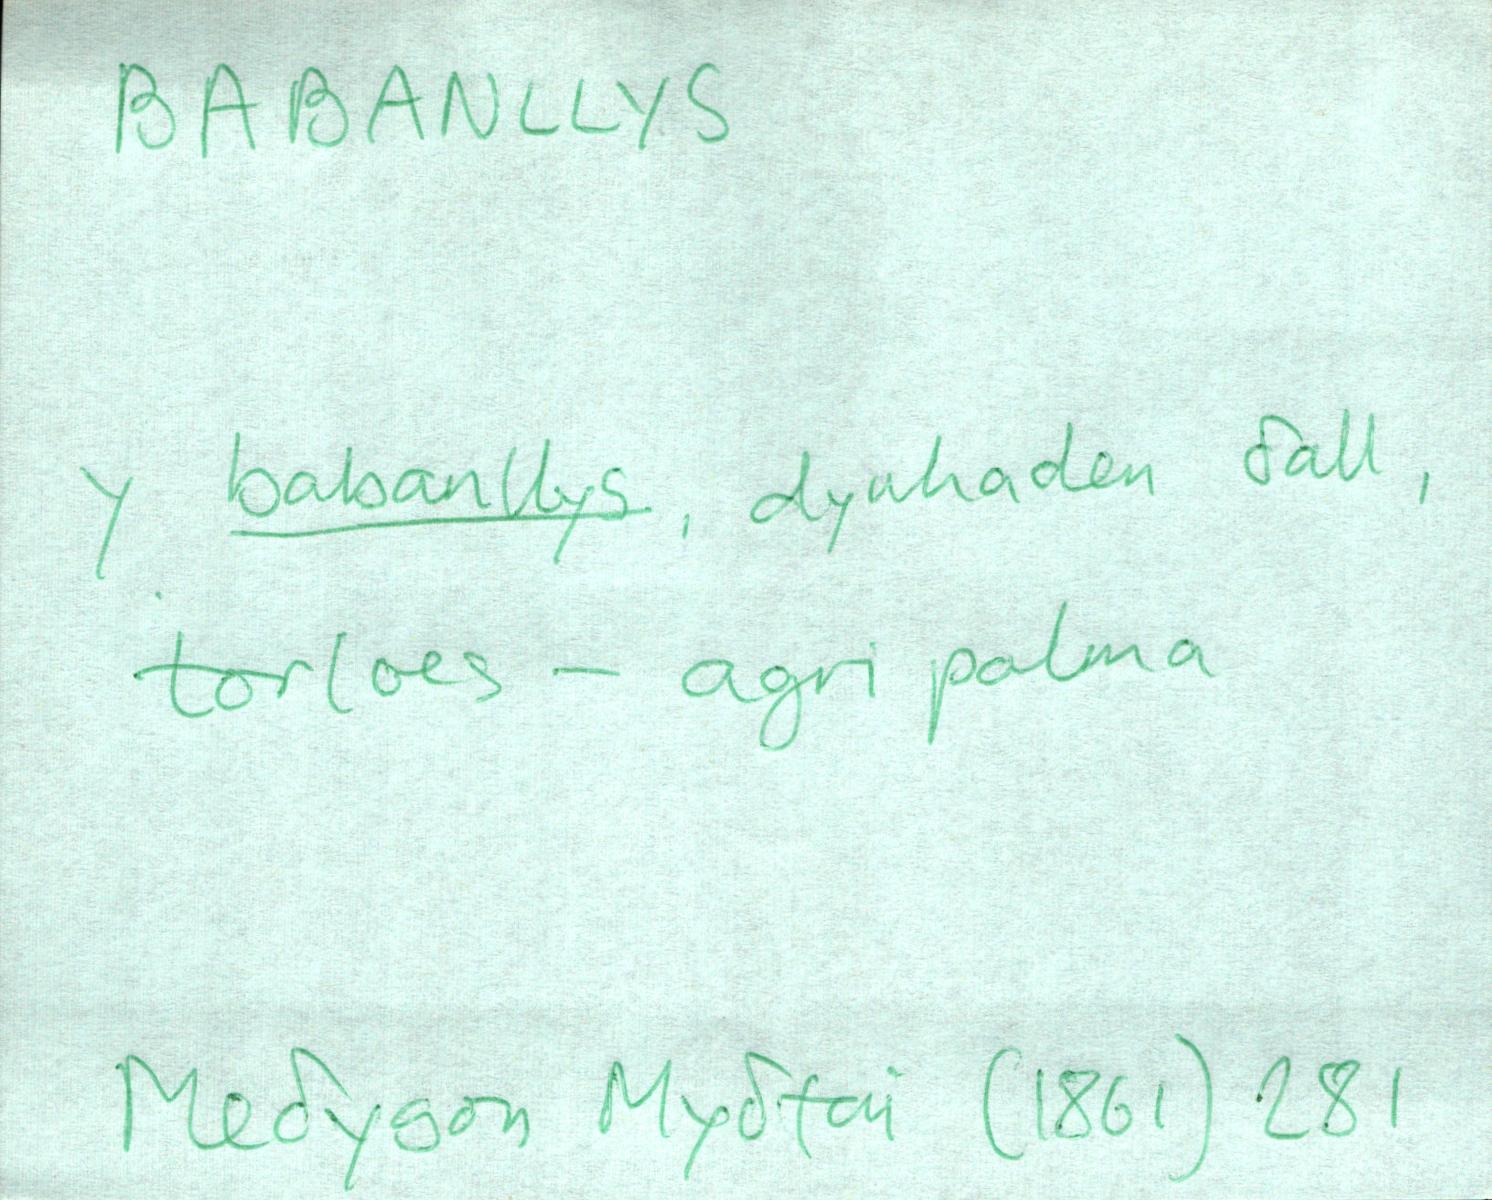 BABANLLYS
y babanllys, dynhaden δall,
torloes – agri palma
Meδygon Myδfai (1861) 281